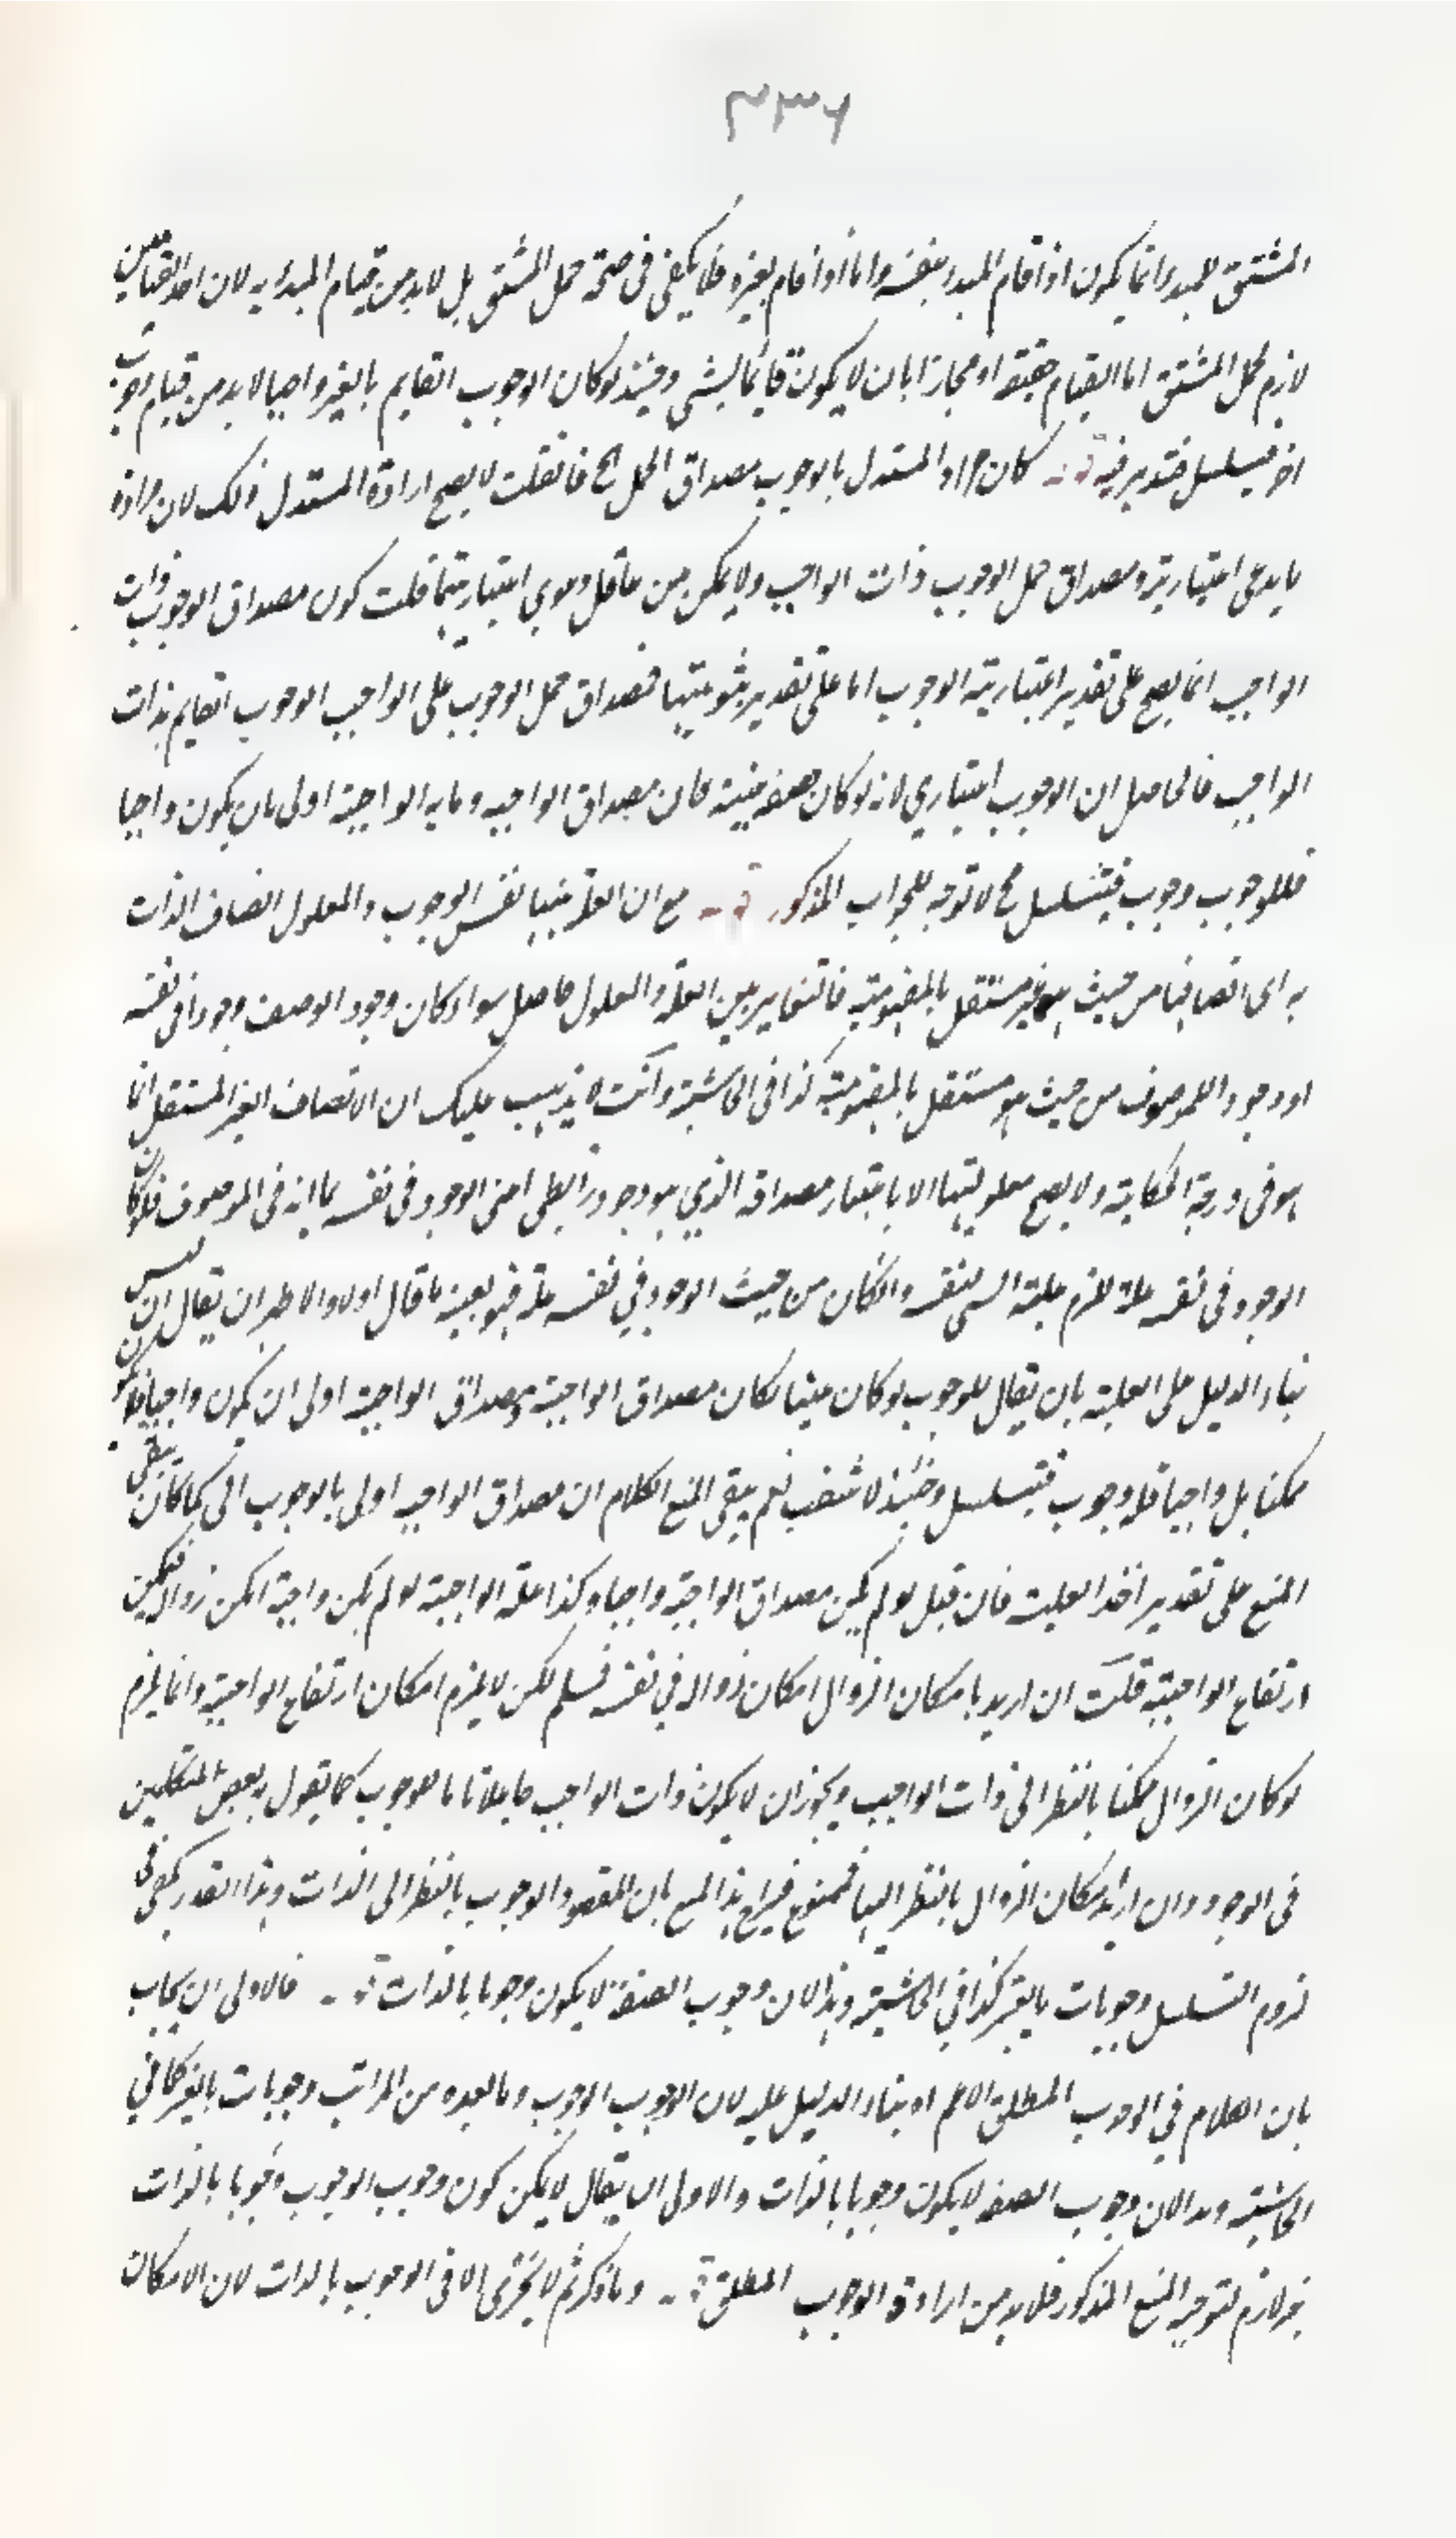 ٣٣٦
المشتق للمبدء انما يكون اذا قام المبدء بنفسه واما اذا قام بغيره فلا يكفى فى صحة حمل المشتق بل لابد من قيام المبدء به لان احد القيامين
لازم لحمل المشتق اما القيام حقيقة او مجازا بان لا يكون قايما بالشى وحينئذ لو كان الوجوب القايم بالغير واجبا لابد من قيام وجوب
اخر فيتسلسل فتدبر فيه قوله كان مراد المستدل بالوجوب مصداق الحمل الخ فان قلت لا يصح ارادة المستدل ذلك لان مراده
ما يدعى اعتباريته ومصداق حمل الوجوب ذات الواجب ولا يمكن من عاقل دعوى اعتباريتها قلت كون مصداق الوجوب ذات
الواجب انما يصح على تقدير اعتبارية الوجوب اما على تقدير ثبوتيتها فمصداق حمل الوجوب على الواجب الوجوب القايم بذات
الواجب فالحاصل ان الوجوب اعتباري لانه لو كان صفة عينية كان مصداق الواجبية وما به الواجبية اولى بان يكون واجبا
فللوجوب وجوب فيتسلسل فح لا توجه للجواب المذكور قوله مع ان العلة ههنا نفس الوجوب والمعلول اتصاف الذات
به اى اتصافها من حيث هو غير مستقل بالمفهومية فالتغاير بين العلة والمعلول حاصل سواء كان وجود الوصف وجودا فى نفسه
او وجودا للموصوف من حيث هو مستقل بالمفهومية كذا فى الحاشية وانت لا يذهب عليك ان الاتصاف الغير المستقل انما
هو فى درجة الحكاية ولا يصح معلوليتها الا باعتبار مصداقه الذي هو وجود رابطى اعنى الوجود فى نفسه بما انه فى الموصوف فلو كان
الوجود فى نفسه علة للزم علية الشى لنفسه وان كان من حيث الوجود فى نفسه علة فهو بعينه ما قال اولا والاظهر ان يقال ان ليس
بناء الدليل على العلية بان يقال للوجوب لو كان عينا لكان مصداق الواجبية ومصداق الواجبية اولى ان يكون واجبا فلا يكون
ممكنا بل واجبا فله وجوب فيتسلسل وحينئذ لا شغب نعم يبقى المنع الكلام ان مصداق الواجبية اولى بالوجوب الى كما كان يبقى
المنع على تقدير اخذ العلية فان قيل لو لم يكن مصداق الواجبية واجبا وكذا علة الواجبية لو لم يكن واجبة امكن زواله فيمكن
ارتفاع الواجبية قلت ان اريد بامكان الزوال امكان زواله في نفسه فسلم لكن لا يلزم امكان ارتفاع الواجبية وانما يلزم
لو كان الزوال ممكنا بالنظر الى ذات الواجب ويجوز ان لا يكون ذات الواجب جاعلا تاما للوجوب كما يقول به بعض المتكلمين
فى الوجود وان اريد امكان الزوال بالنظر اليها فممنوع فيراجع هذا المنع بان المقصود الوجوب بالنظر الى الذات وهذا القدر يكفى فى
لزوم التسلسل وجوبات بالغير كذا في الحاشية وهذا لان وجوب الصفة لا يكون وجوبا بالذات قوله فالاولى ان يجاب
بان الكلام في الوجوب المطلق الاعم اه بناء الدليل عليه لان الوجوب الوجوب وما بعده من المراتب وجوبات بالغير كما في
الحاشية وهذا لان وجوب الصفة لا يكون وجوبا بالذات والاولى ان يقال لا يمكن كون وجوب الوجوب وجوبا بالذات
غير لازم لتوجه المنع المذكور فلا بد من ارادة الوجوب المطلق قوله وما ذكرتم لا يجرى الا فى الوجوب بالذات لان الامكان